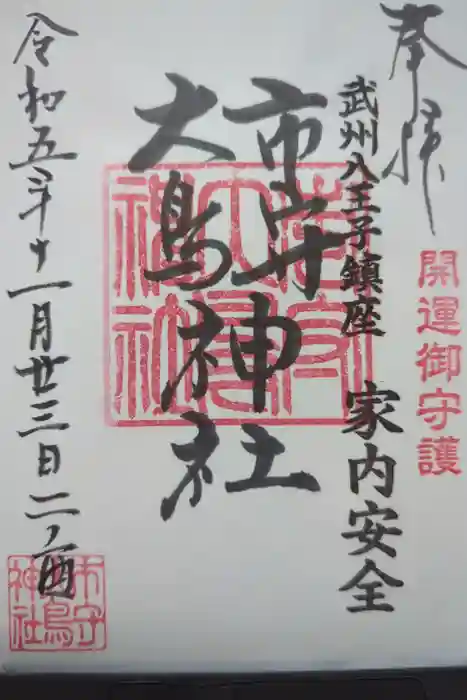 奉拝
開運御守護
武州八王子鎮座 家内安全
市守神社
大鳥神社
令和五年十一月廿三日二ノ酉
市守
大鳥
神社
市守
神社鳥